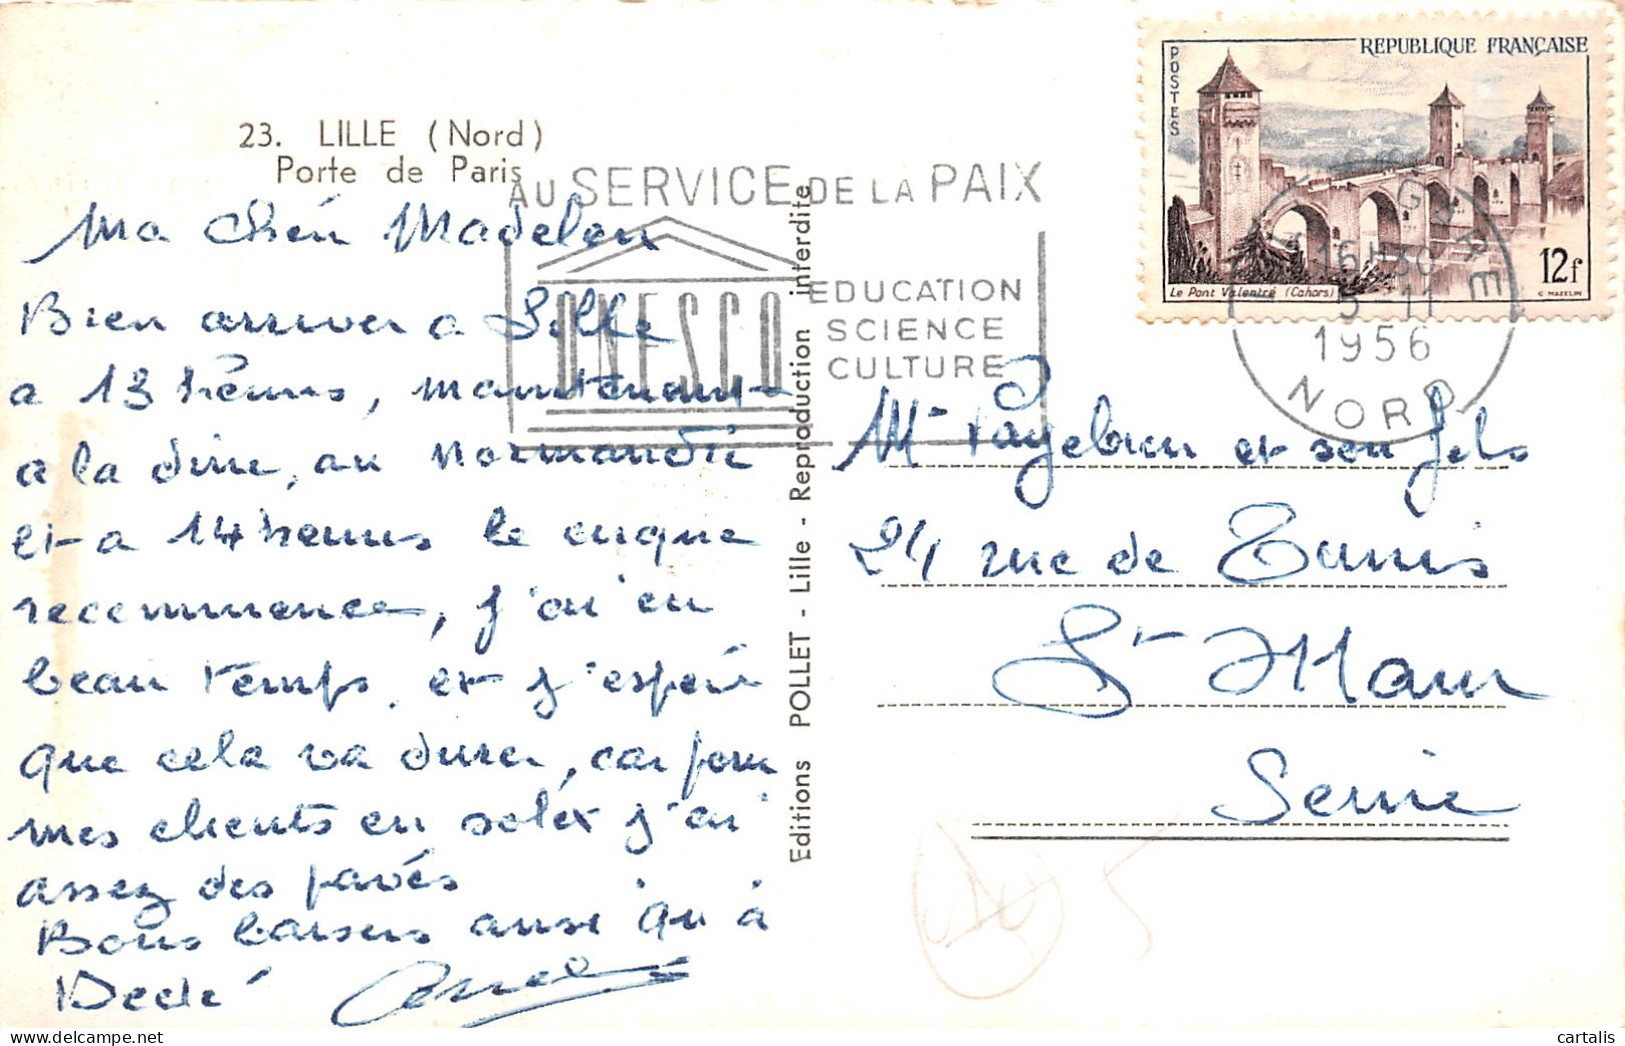 23. LILLE (Nord)
Porte de Paris
Ma chéri Madelon
Bien arriver a Lille
a 13 heures, maintenant
a la dine, au normandie
et a 14 heures le cirque
recommence, j'ai eu
beau temps, et j'espére
que cela va durer, car pour
mes clients en solex j'ai
assez des pavés
Bons baisers ainsi qu'à
Dédé
Editions POLLET - Lille - Reproduction interdite
AU SERVICE DE LA PAIX
UNESCO
EDUCATION
SCIENCE
CULTURE
REPUBLIQUE FRANÇAISE
POSTES
Le Pont Valentré (Cahors)
12f
C. MAZELIN
GARE
16H30
5-11
1956
NORD
et son fils
24 rue de Tunis
St Maur
Seine
5
cartalis